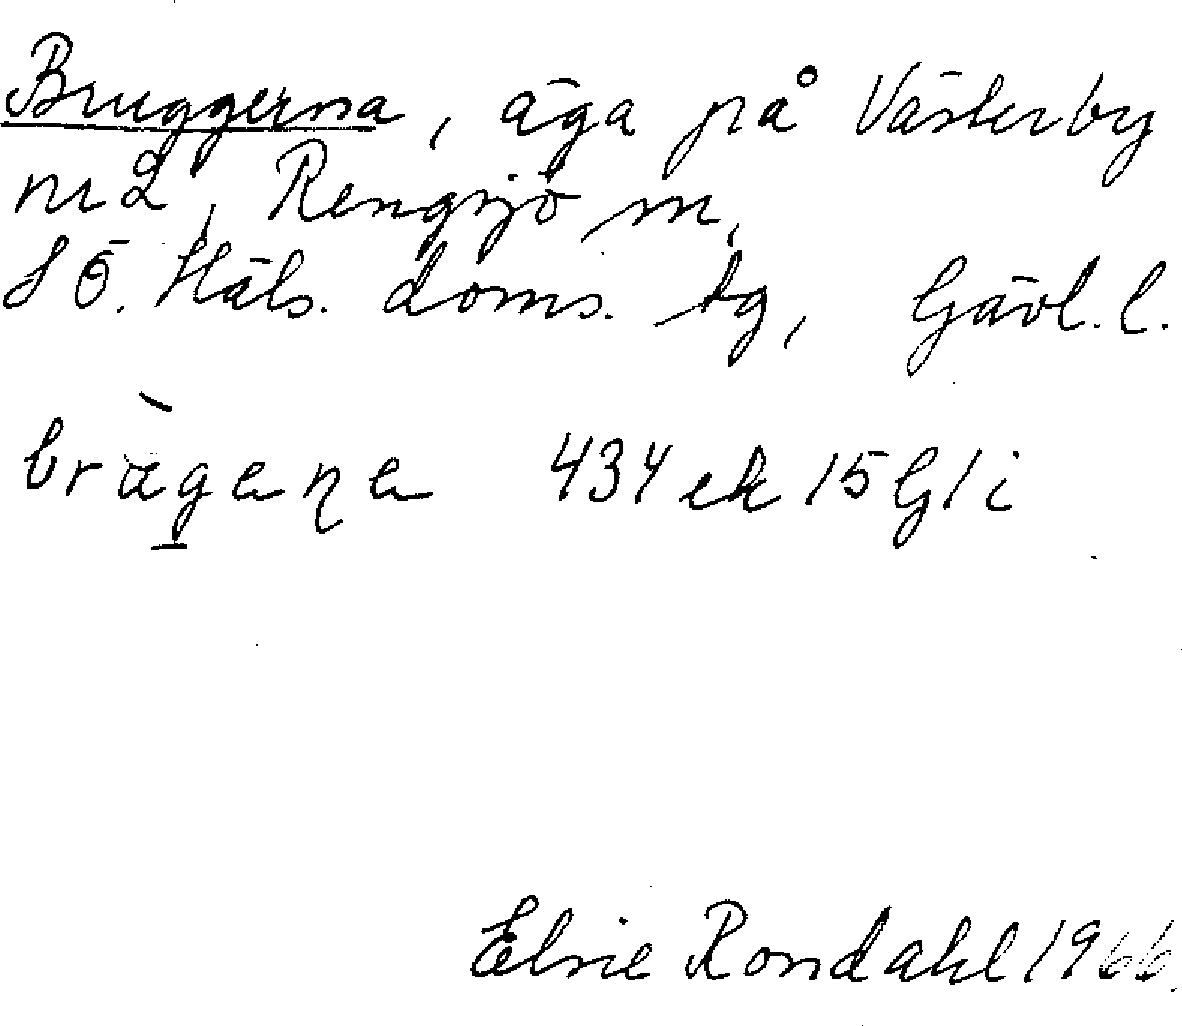 Bruggerna, äga på Västerby
nr 2, Rengsjö sn,
SÖ. Häls. doms. tg, Gävl. l.
brägena 434 ek 15 G 1 i
Elsie Rondahl 1966.